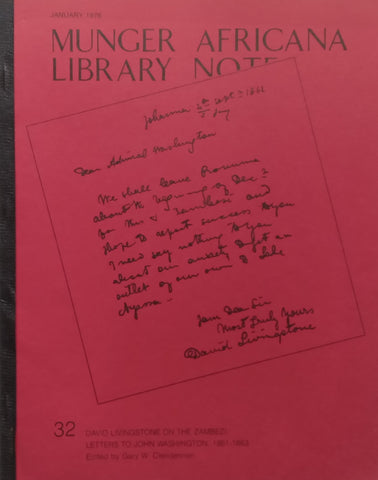 JANUARY 1976
MUNGER AFRICANA
LIBRARY NOTE
Johanna 5th Septr 1861
Dear Admiral Washington
We shall leave Rovuma
about the beginning of Decr
for this & Zambesi and
I hope to report success to you
I need say nothing to you
about our anxiety to get an
outlet of our own to Lake
Nyassa -
I am Dear Sir
Most truly Yours
David Livingstone
32
DAVID LIVINGSTONE ON THE ZAMBEZI:
LETTERS TO JOHN WASHINGTON, 1861-1863
Edited by Gary W. Clendennen